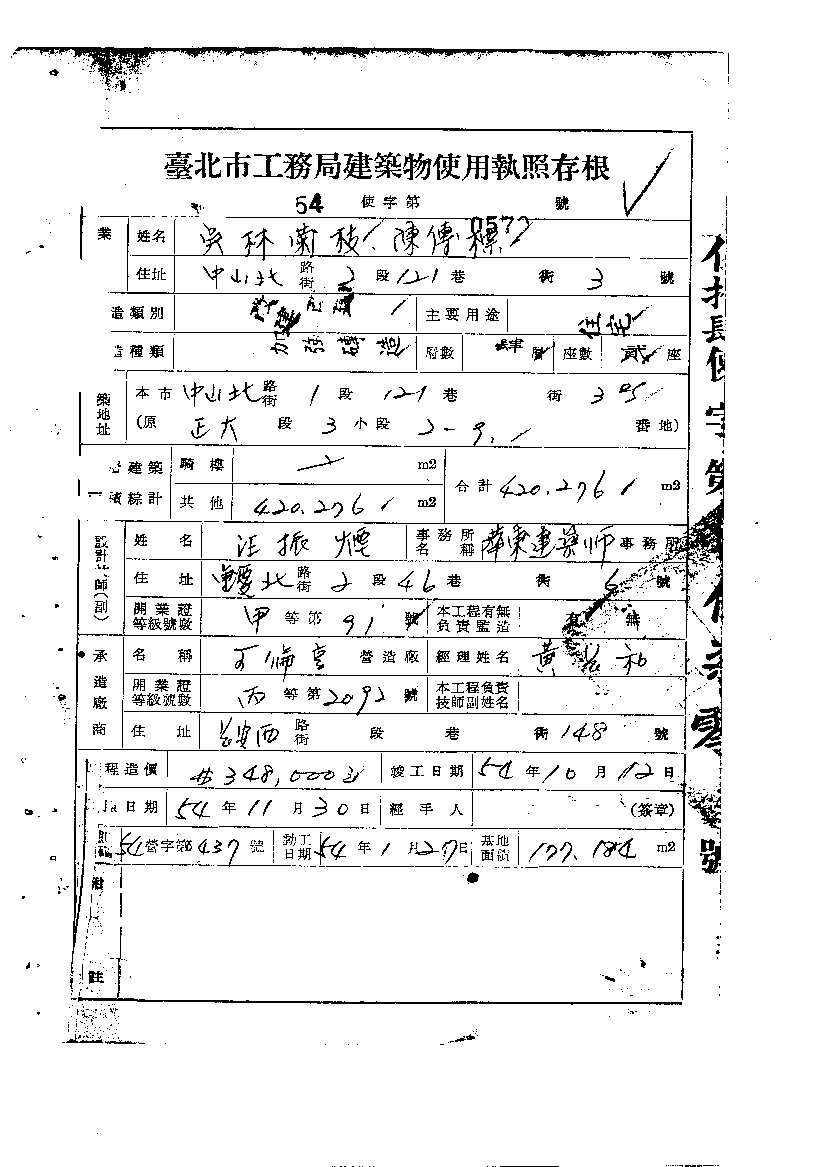 臺北市工務局建築物使用執照存根
54 使字第 0577 號
業 姓名 吳林蘭枝 陳傳標
住址 中山北 路街 2 段 121 巷 街 3 號
造類別 主要用途 住宅
造種類 加強磚造 層數 肆層 座數 貳座
築地址 本市 中山北 路街 1 段 121 巷 街 3
(原 正大 段 3 小段 2-9 番地)
建築 騎樓 m2 合計 420.276 m2
積綜計 其他 420.276 m2
設計師(副) 姓名 汪振煙 事務所名稱 華東建築師 事務所
住址 重慶北 路街 2 段 46 巷 街 6 號
開業證等級號數 甲 等第 91 號 本工程有無負責監造 無
承造廠商 名稱 營造廠 經理姓名 黃
開業證等級號數 丙 等第 2092 號 本工程負責技師副姓名
住址 長安西 路街 段 巷 街 148 號
程造價 #348,000 竣工日期 54年10月12日
日期 54年11月30日 經手人 (簽章)
54營字第437號 動工日期 54年1月27日 基地面積 177.184 m2
附
註